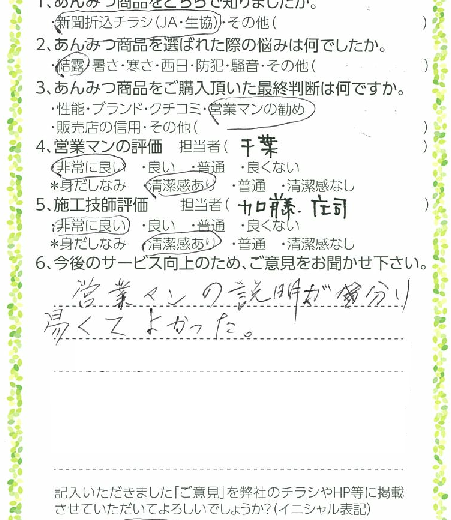 1、あんみつ商品をどちらで知りましたか。
・新聞折込チラシ(JA・生協)・その他(　　　)
2、あんみつ商品を選ばれた際の悩みは何でしたか。
・結露・暑さ・寒さ・西日・防犯・騒音・その他(　　　)
3、あんみつ商品をご購入頂いた最終判断は何ですか。
・性能・ブランド・クチコミ・営業マンの勧め
・販売店の信用・その他(　　　)
4、営業マンの評価　担当者(　千葉　)
・非常に良い・良い・普通・良くない
*身だしなみ・清潔感あり・普通・清潔感なし
5、施工技師評価　担当者(　加藤、庄司　)
・非常に良い・良い・普通・良くない
*身だしなみ・清潔感あり・普通・清潔感なし
6、今後のサービス向上のため、ご意見をお聞かせ下さい。
営業マンの説明が分り
易くてよかった。
記入いただきました「ご意見」を弊社のチラシやHP等に掲載
させていただいてよろしいでしょうか?(イニシャル表記)